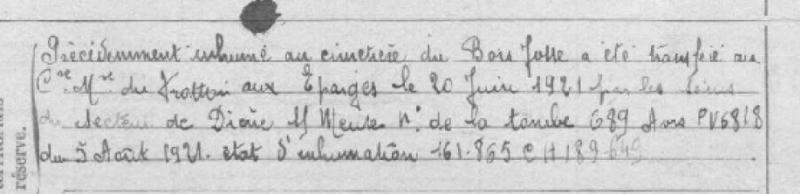 Précédemment inhumé au cimetière du Bois Josse a été transféré au
Cre Mre du Trottoir aux Eparges le 20 Juin 1921 par les soins
du secteur de Dieue s/ Meuse N° de la tombe 689 Avis PV6818
du 5 Août 1921. état d'inhumation 161.865 C H 189 649
réserve.